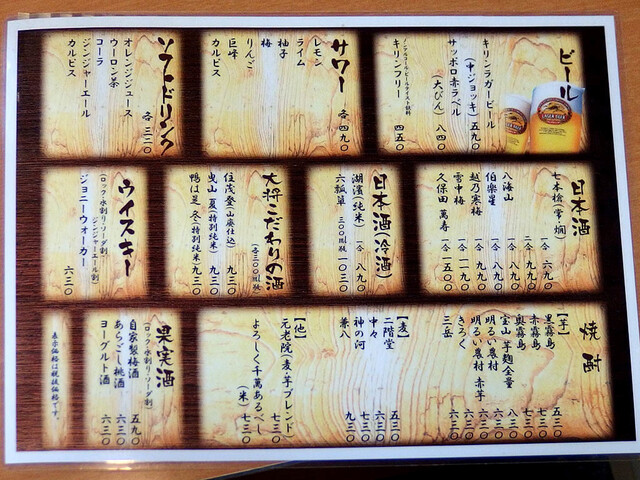 ビール
キリンラガービール
(中ジョッキ) 五九〇
サッポロ赤ラベル
(大びん) 八四〇
ノンアルコール・ビールテイスト飲料
キリンフリー 四五〇
サワー
各 四九〇
レモン
ライム
柚子
梅
りんご
巨峰
カルピス
ソフトドリンク
各 三二〇
オレンジジュース
ウーロン茶
コーラ
ジンジャーエール
カルピス
日本酒
七本槍(常・燗)
一合 六九〇
二合
八海山 一合 九九〇
伯楽星 一合 八九〇
越乃寒梅 一合 九九〇
雪中梅 一合 一一九〇
久保田 萬寿 一合 一五〇〇
日本酒(冷酒)
湖濱(純米) 一合 八九〇
六瓢箪 三〇〇ml瓶 一〇三〇
大将こだわりの酒
(各三〇〇ml瓶)
住茂登(山廃仕込) 九三〇
曳山 夏(特別純米) 九三〇
鴨は是 冬(特別純米) 九三〇
ウイスキー
(ロック・水割り・ソーダ割)
ジンジャーエール割)
ジョニーウォーカー 六三〇
焼酎
【芋】
黒霧島 五三〇
赤霧島 七三〇
奥霧島
宝山 芋麹全量 八三〇
明るい農村 六三〇
明るい農村 赤芋
きろく 六三〇
三岳 六三〇
【麦】
二階堂 五三〇
中々 六三〇
神の河 七三〇
兼八 九三〇
【他】
元老院(麦・芋ブレンド)
七三〇
よろしく千萬あるべし
(米) 七三〇
果実酒
(ロック・水割り・ソーダ割)
自家製梅酒 五九〇
あらごし桃酒 六三〇
ヨーグルト酒 六三〇
表示価格は税抜価格です。